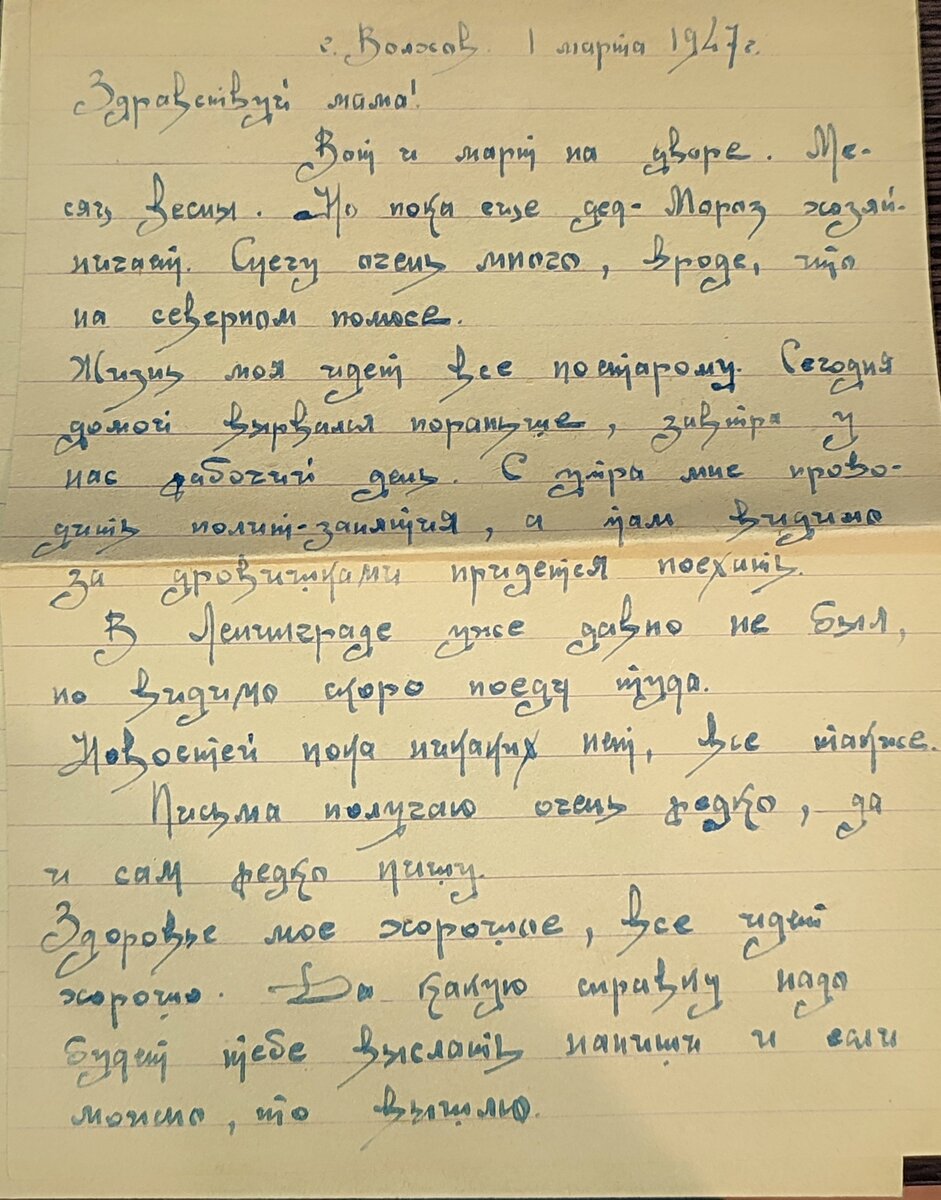 г. Волхов. 1 марта 1947 г.
Здравствуй мама!
Вот и март на дворе. Ме-
сяц весны. Но пока еще дед-Мороз хозяй-
ничает. Снегу очень много, вроде, что
на северном помюсе.
Жизнь моя идет все постарому. Сегодня
домой вырвался пораньше, завтра у
нас рабочий день. С утра мне прово-
дить полит-занятия, а там видимо
за дровишками придется поехать.
В Ленинграде уже давно не был,
но видимо скоро поеду туда.
Новостей пока никаких нет, все также.
Письма получаю очень редко, да
и сам редко пишу.
Здоровье мое хорошее, все идет
хорошо. Да какую справку надо
будет тебе выслать напиши и если
можно, то вышлю.